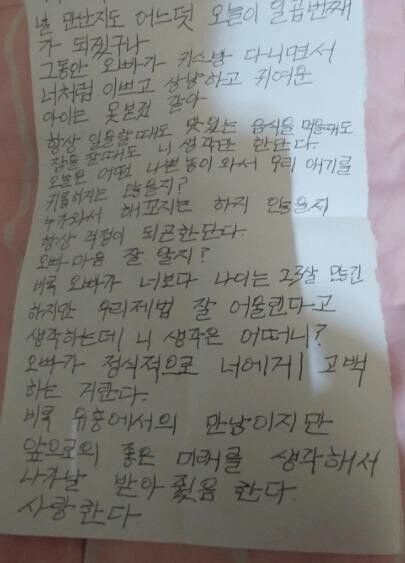 널 만난지도 어느덧 오늘이 일곱번째
가 되겠구나
그동안 오빠가 키스방 다니면서
너처럼 이쁘고 상냥하고 귀여운
아이는 못본것 같아
항상 일을할때도 맛있는 음식을 먹을때도
잠을 잘때도 니 생각만 한단다.
오늘은 어떤 나쁜놈이 와서 우리 애기를
괴롭히지는 않을지?
누가와서 해꼬지는 하지 않을지
항상 걱정이 되곤한단다.
오빠 마음 잘 알지?
비록 오빠가 너보다 나이는 23살 많긴
하지만 우리제법 잘 어울린다고
생각하는데 니 생각은 어떠니?
오빠가 정식적으로 너에게 고백
하는 거란다.
비록 유흥에서의 만남이지만
앞으로의 좋은 미래를 생각해서
나가날 받아줬음 한다
사랑한다